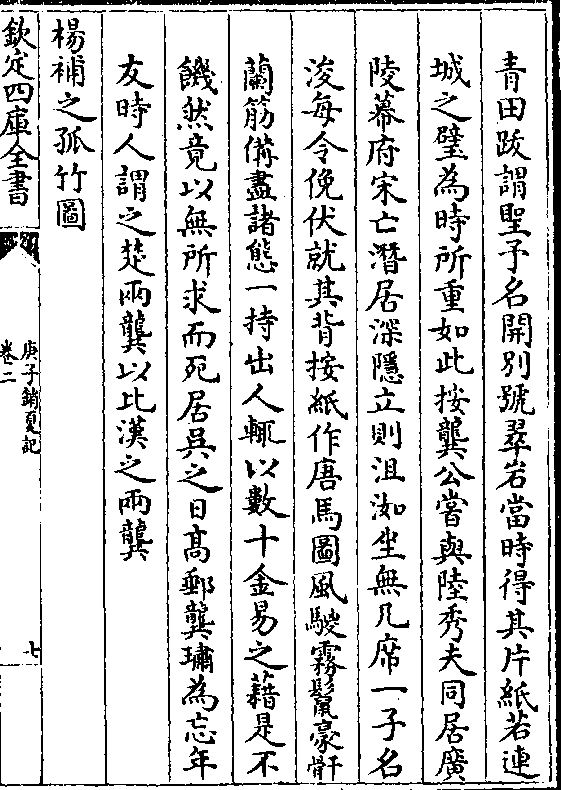 青田跋謂聖予名開別號翠岩當時得其片紙若連
城之璧為時所重如此按龔公嘗與陸秀夫同居廣
陵幕府宋亡潛居深隱立則沮洳坐無几席一子名
浚每令俛伏就其背按紙作唐馬圖風鬉霧鬛豪骭
蘭筋備盡諸態一持出人輒以數十金易之藉是不
饑然竟以無所求而死居吳之日髙郵龔璛為忘年
友時人謂之楚兩龔以比漢之兩龔
楊補之孤竹圖
欽定四庫全書
庚子銷夏記
卷二
七